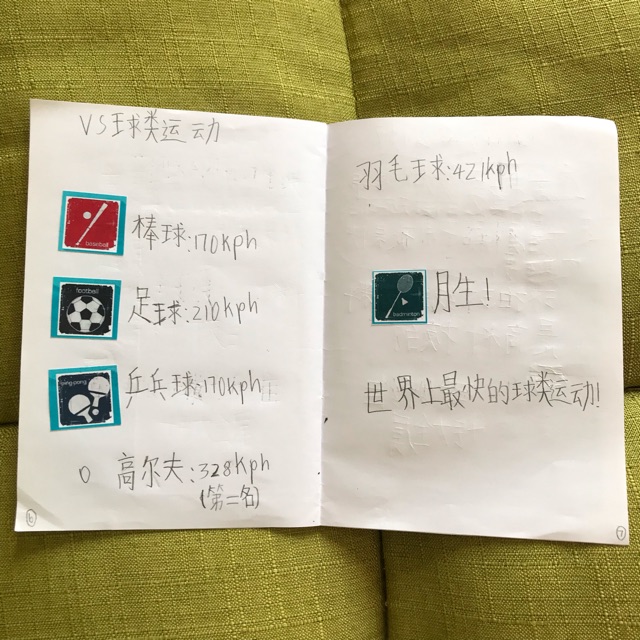 VS球类运动
baseball
棒球:170kph
football
足球:210kph
ping-pong
乒乓球:170kph
高尔夫:328kph
(第二名)
6
羽毛球:421kph
badminton
胜!
世界上最快的球类运动!
7